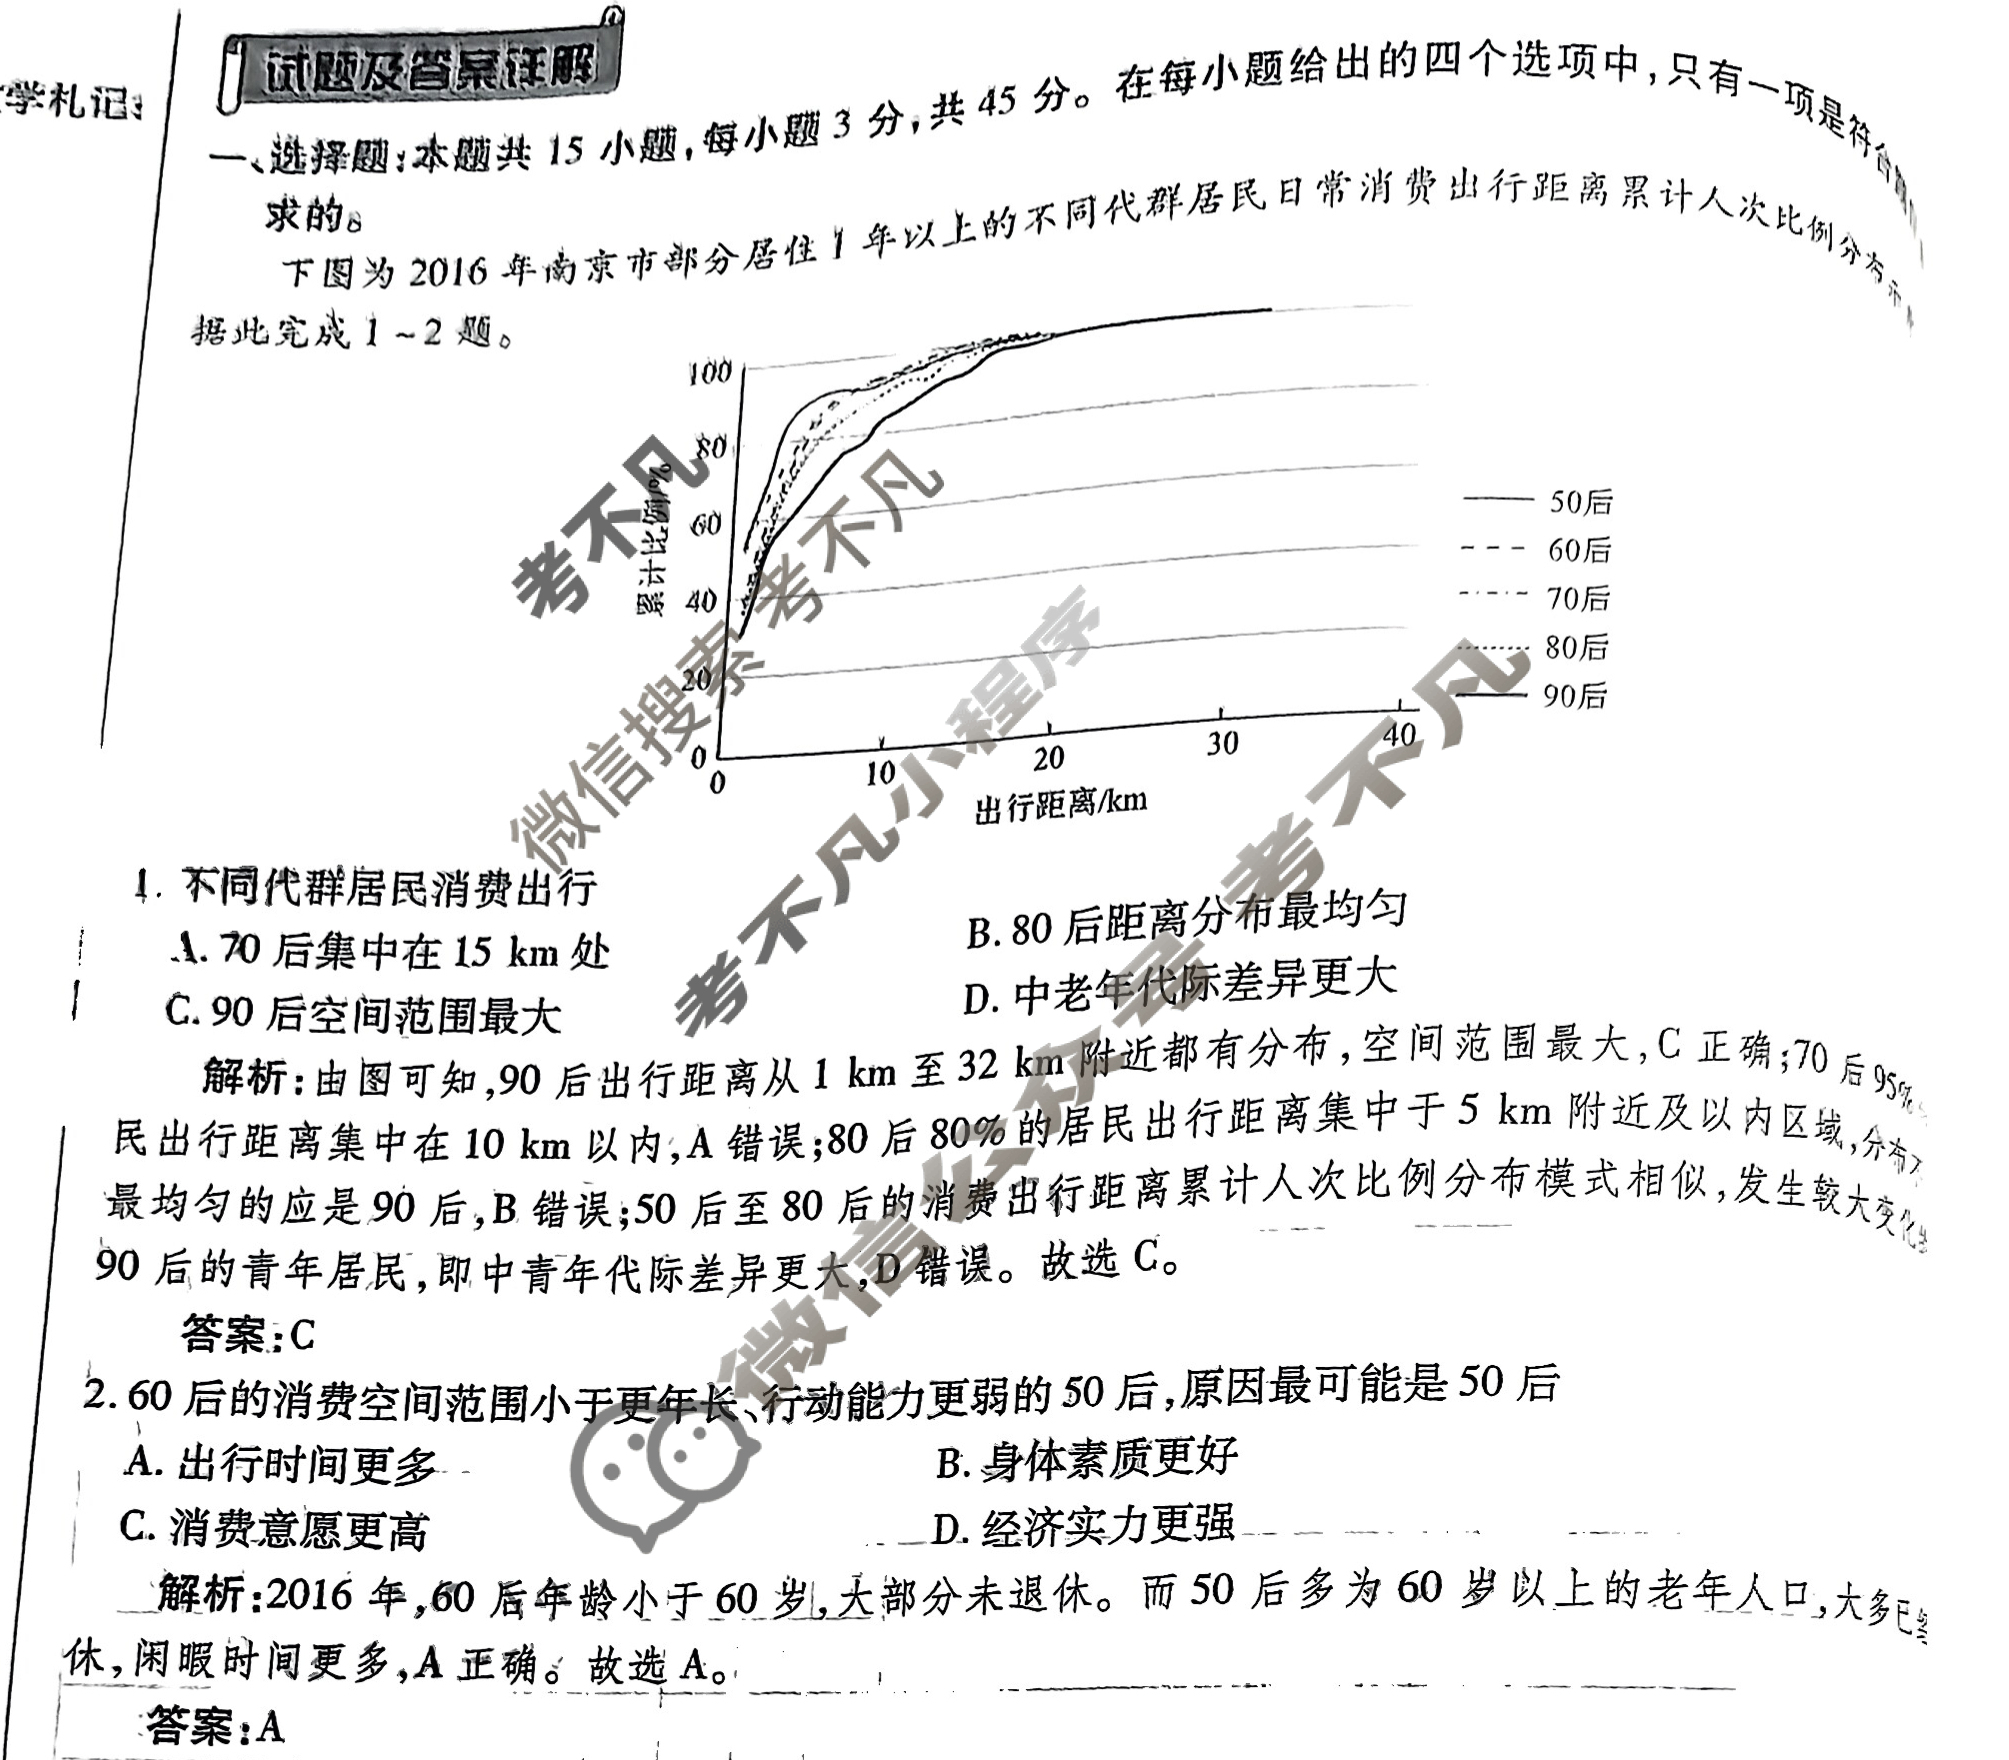 学札记
试题及答案详解
一、选择题:本题共 15 小题,每小题 3 分,共 45 分。在每小题给出的四个选项中,只有一项是符合
求的。
下图为 2016 年南京市部分居住 1 年以上的不同代群居民日常消费出行距离累计人次比例分布
据此完成 1~2 题。
累计比例/%
100
80
60
40
20
0
0
10
20
30
40
出行距离/km
50后
60后
70后
80后
90后
1. 不同代群居民消费出行
A. 70 后集中在 15 km 处
B. 80 后距离分布最均匀
C. 90 后空间范围最大
D. 中老年代际差异更大
解析:由图可知,90 后出行距离从 1 km 至 32 km 附近都有分布,空间范围最大,C 正确;70 后 95%
民出行距离集中在 10 km 以内,A 错误;80 后 80%的居民出行距离集中于 5 km 附近及以内区域,分布
最均匀的应是 90 后,B 错误;50 后至 80 后的消费出行距离累计人次比例分布模式相似,发生较大变化
90 后的青年居民,即中青年代际差异更大,D 错误。故选 C。
答案:C
2. 60 后的消费空间范围小于更年长、行动能力更弱的 50 后,原因最可能是 50 后
A. 出行时间更多
B. 身体素质更好
C. 消费意愿更高
D. 经济实力更强
解析:2016 年,60 后年龄小于 60 岁,大部分未退休。而 50 后多为 60 岁以上的老年人口,大多已
休,闲暇时间更多,A 正确。故选 A。
答案:A
考不凡
微信搜索 考不凡
考不凡小程序
微信公众号 考不凡